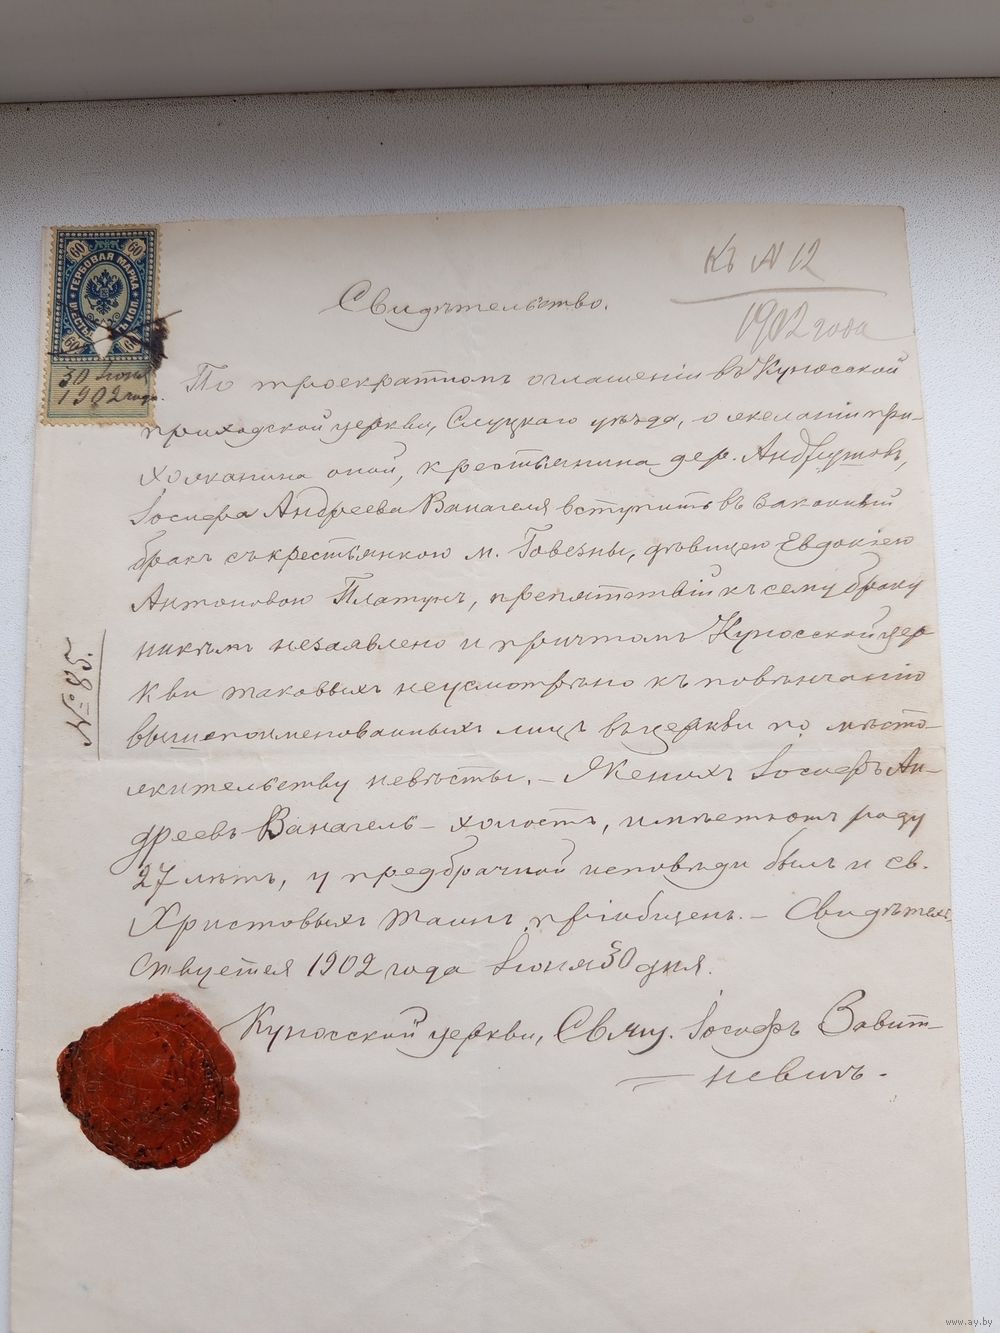 Къ N 12
1902 года
60 60
ГЕРБОВАЯ МАРКА
60 60
30 Іюня
1902 года.
Свидѣтельство.
По троекратномъ оглашеніи въ Куносской
приходской церкви, Слуцкаго уѣзда, о желаніи при-
хожанина оной, крестьянина дер. Андрушовъ,
Іосифа Андреева Ванагеля вступить въ законный
бракъ съ крестьянкою м. Говезны, дѣвицею Евдокіею
Антоновою Платунъ, препятствій къ сему браку
никѣмъ незаявлено и причтомъ Куносской цер
кви таковыхъ неусмотрѣно къ повѣнчанію
вышепоименованныхъ лицъ въ церкви по мѣсто-
жительству невѣсты. – Женихъ Іосифъ Ан-
дреевъ Ванагель – холостъ, имѣетъ отъ роду
27 лѣтъ, у предбрачной исповѣди былъ и св.
Христовыхъ Таинъ пріобщенъ. – Свидѣтель-
ствуется 1902 года Іюня 30 дня.
Куносской церкви, Свящ. Іосифъ Вавит-
невичъ.
№ 85.
www.ay.by